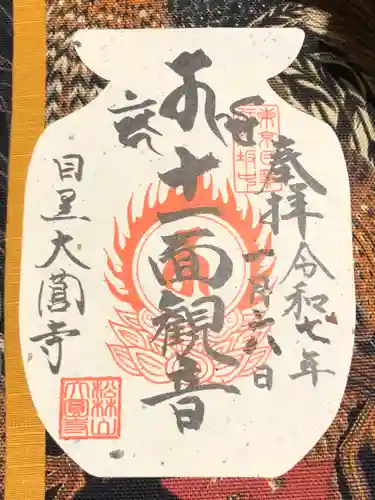 奉拝
令和七年
一月
日
東京目黒
行人坂中
十一面観音
目黒大圓寺
松林山
大圓寺